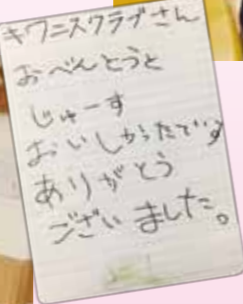 キワニスクラブさん
おべんとうと
じゅーす
おいしかったです
ありがとう
ございました。